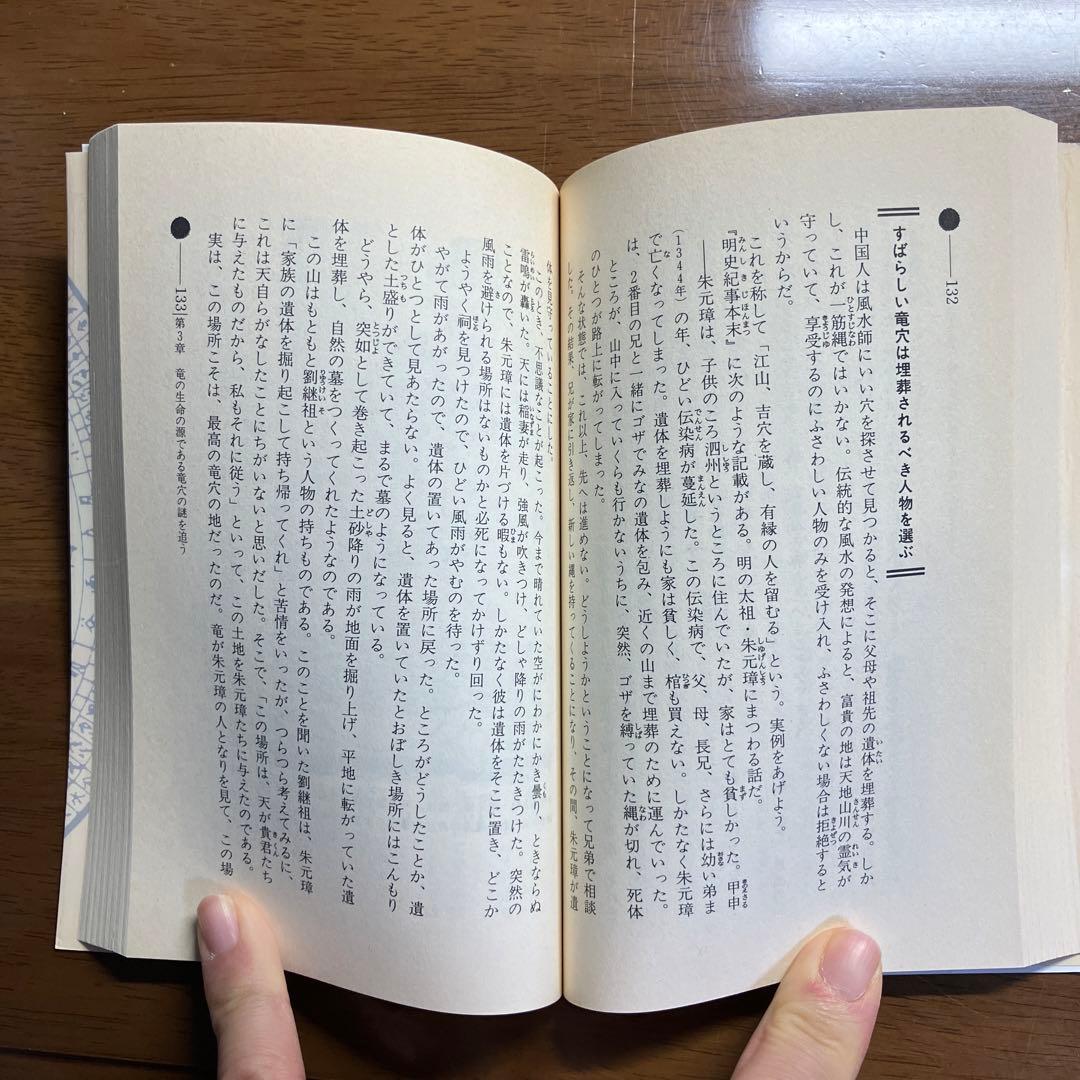 132
すばらしい竜穴は埋葬されるべき人物を選ぶ
中国人は風水師にいい穴を探させて見つかると、そこに父母や祖先の遺体を埋葬する。しか
し、これが一筋縄ではいかない。伝統的な風水の発想によると、富貴の地は天地山川の霊気が
守っていて、享受するのにふさわしい人物のみを受け入れ、ふさわしくない場合は拒絶すると
いうからだ。
これを称して「江山、吉穴を蔵し、有縁の人を留むる」という。実例をあげよう。
『明史紀事本末』に次のような記載がある。明の太祖・朱元璋にまつわる話だ。
――朱元璋は、子供のころ泗州というところに住んでいたが、家はとても貧しかった。甲申
(1344年)の年、ひどい伝染病が蔓延した。この伝染病で、父、母、長兄、さらには幼い弟ま
で亡くなってしまった。遺体を埋葬しようにも家は貧しく、棺も買えない。しかたなく朱元璋
は、2番目の兄と一緒にゴザでみなの遺体を包み、近くの山まで埋葬のために運んでいった。
ところが、山中に入っていくらも行かないうちに、突然、ゴザを縛っていた縄が切れ、死体
のひとつが路上に転がってしまった。
そんな状態では、これ以上、先へは進めない。どうしようかということになって兄弟で相談
した。その結果、兄が家に引き返し、新しい縄を持ってくることになり、その間、朱元璋が遺
体を見守っていることにした。
このとき、不思議なことが起こった。今まで晴れていた空がにわかにかき曇り、ときならぬ
雷鳴が轟いた。天には稲妻が走り、強風が吹きつけ、どしゃ降りの雨がたたきつけた。突然の
ことなので、朱元璋には遺体を片づける暇もない。しかたなく彼は遺体をそこに置き、どこか
風雨を避けられる場所はないものかと必死になってかけずり回った。
ようやく祠を見つけたので、ひどい風雨がやむのを待った。
やがて雨があがったので、遺体の置いてあった場所に戻った。ところがどうしたことか、遺
体がひとつとして見あたらない。よく見ると、遺体を置いていたとおぼしき場所にはこんもり
とした土盛りができていて、まるで墓のようになっている。
どうやら、突如として巻き起こった土砂降りの雨が地面を掘り上げ、平地に転がっていた遺
体を埋葬し、自然の墓をつくってくれたようなのである。
この山はもともと劉継祖という人物の持ちものである。このことを聞いた劉継祖は、朱元璋
に「家族の遺体を掘り起こして持ち帰ってくれ」と苦情をいったが、つらつら考えてみるに、
これは天自らがなしたことにちがいないと思いだした。そこで、「この場所は、天が貴君たち
に与えたものだから、私もそれに従う」といって、この土地を朱元璋たちに与えたのである。
実は、この場所こそは、最高の竜穴の地だったのだ。竜が朱元璋の人となりを見て、この場
133 第3章 竜の生命の源である竜穴の謎を追う